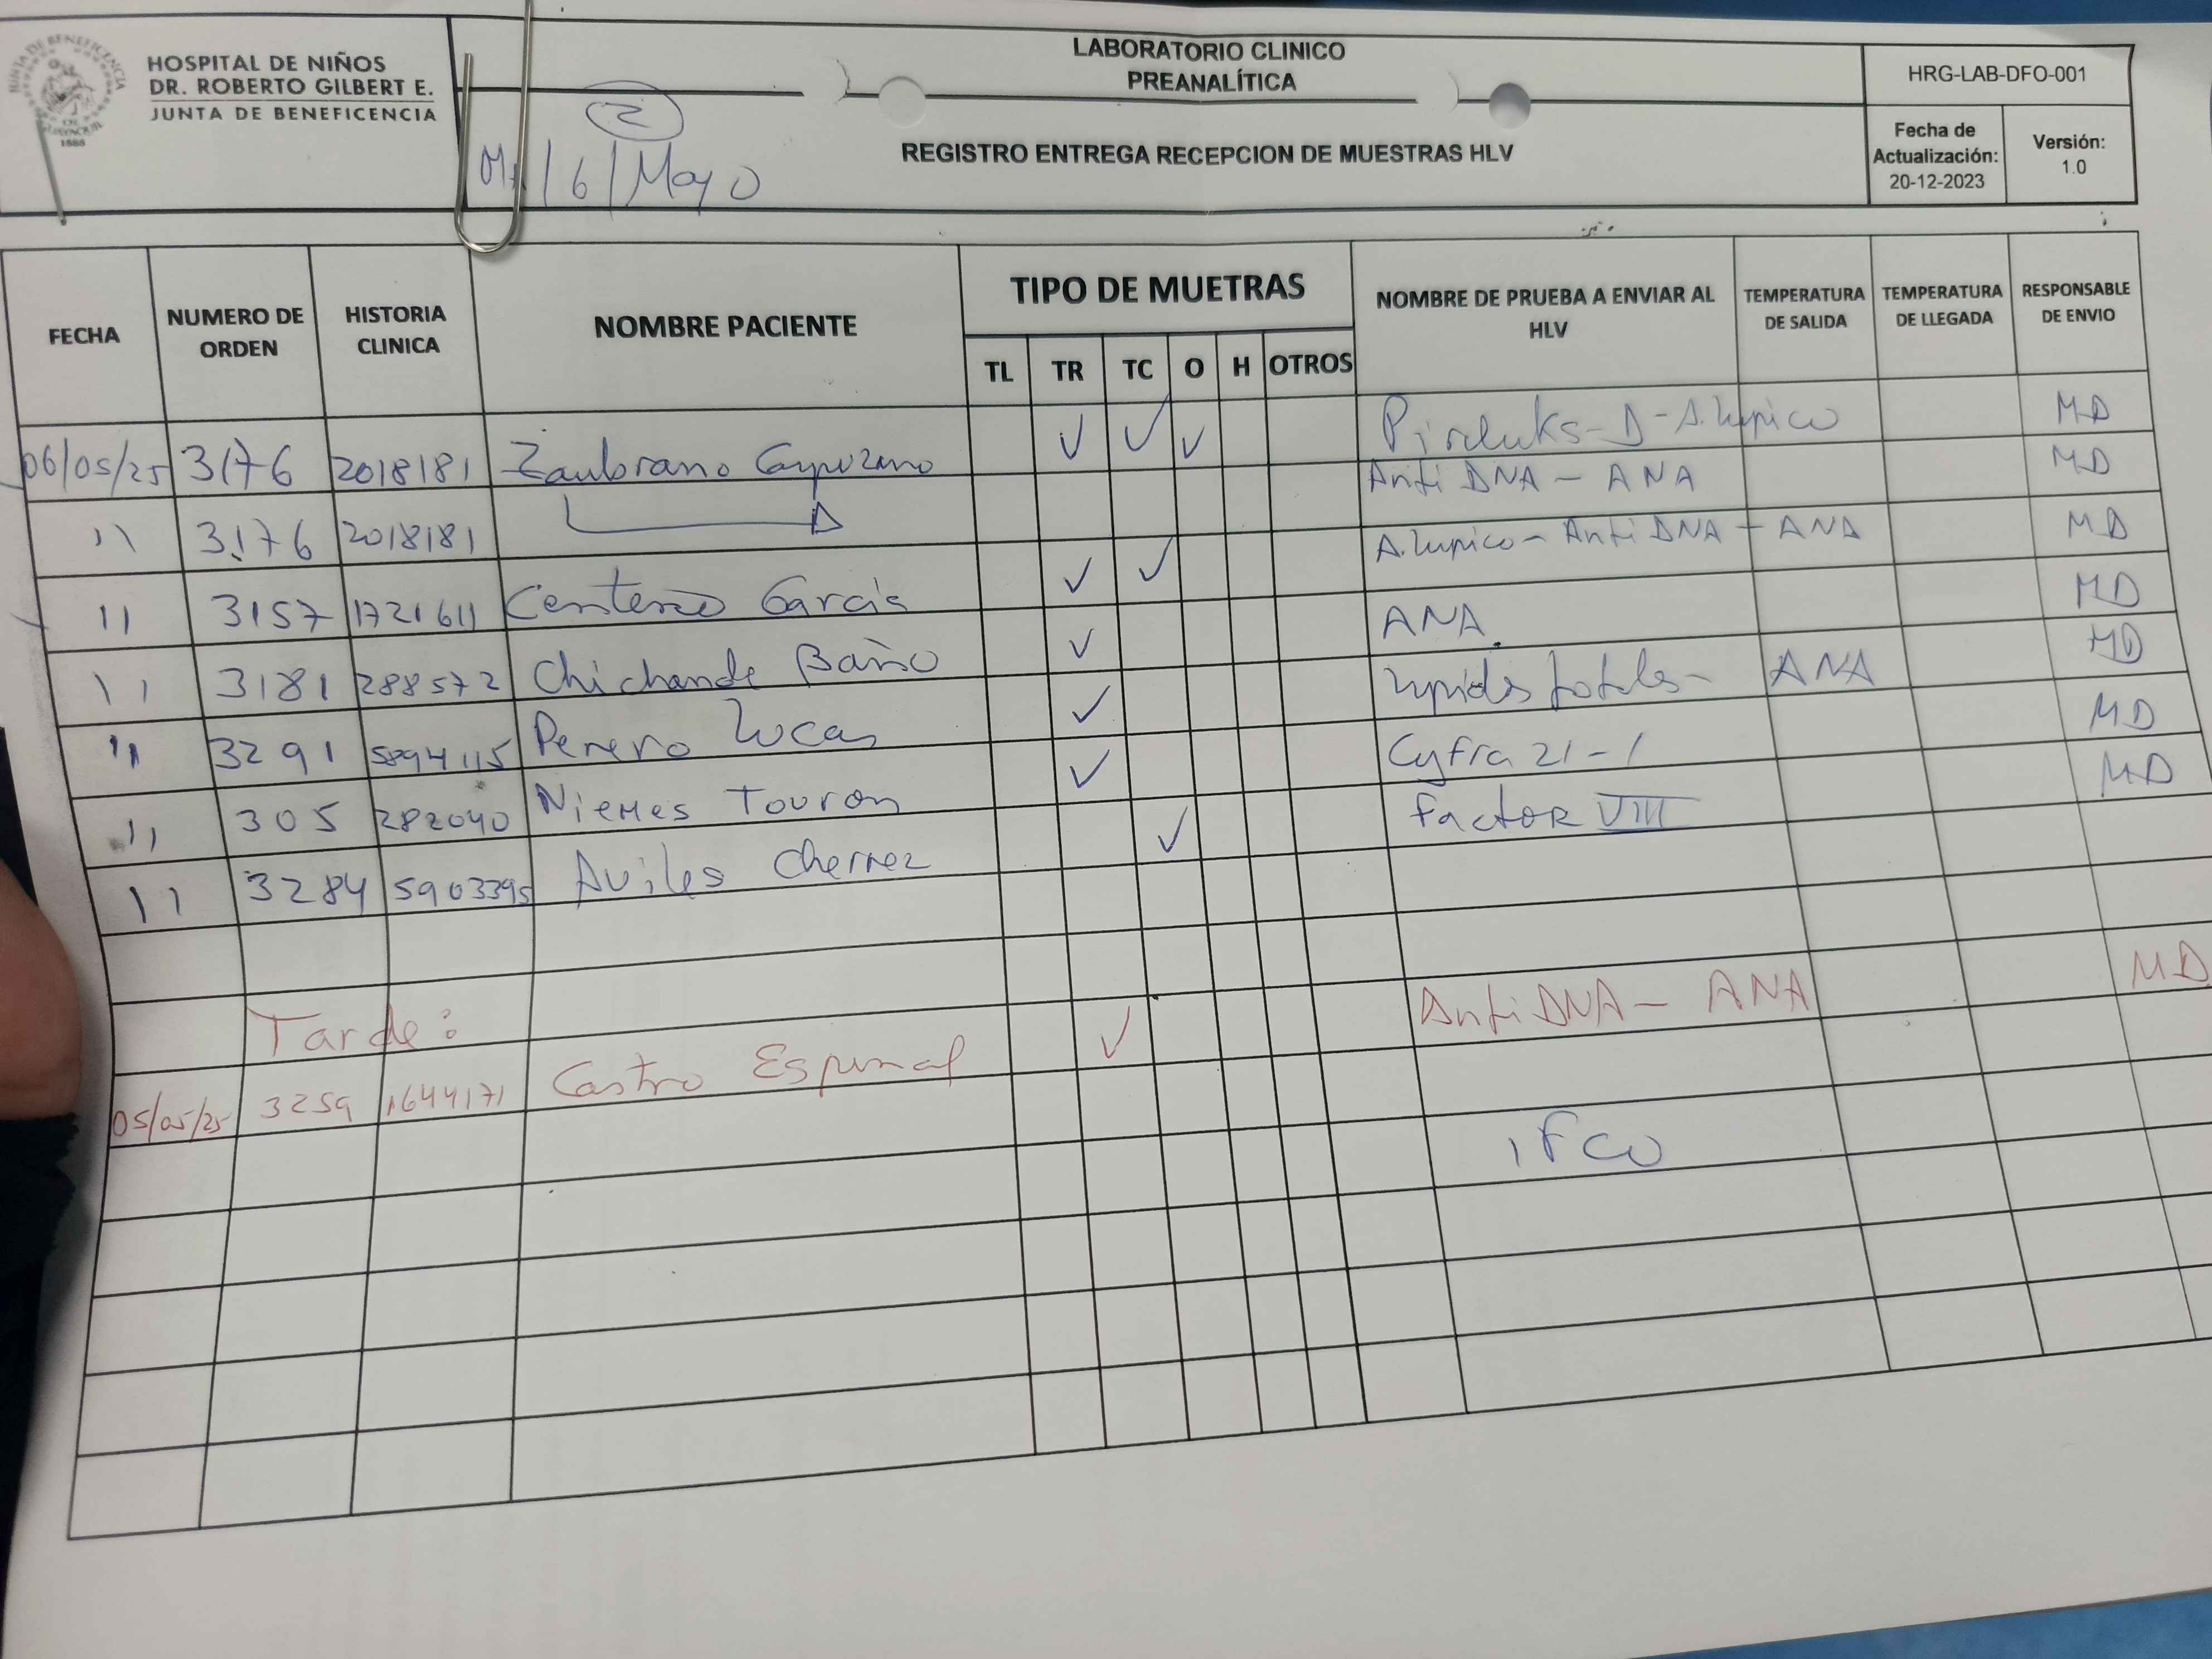 HOSPITAL DE NIÑOS
DR. ROBERTO GILBERT E.
JUNTA DE BENEFICENCIA
LABORATORIO CLINICO
PREANALÍTICA
REGISTRO ENTREGA RECEPCION DE MUESTRAS HLV
HRG-LAB-DFO-001
Fecha de
Actualización:
20-12-2023
Versión:
1.0
2
/6/Mayo
FECHA
NUMERO DE
ORDEN
HISTORIA
CLINICA
NOMBRE PACIENTE
TIPO DE MUETRAS
TL TR TC O H OTROS
NOMBRE DE PRUEBA A ENVIAR AL
HLV
TEMPERATURA
DE SALIDA
TEMPERATURA
DE LLEGADA
RESPONSABLE
DE ENVIO
06/05/25 3176 2018181 Zambrano ✓ ✓ ✓ D - A. lupico MD
11 3176 2018181 Anti DNA - ANA MD
11 3157 1721611 Centeno Garcia ✓ ✓ A. lupico - Anti DNA - ANA MD
11 3181 288572 Chichande Baño ✓ ANA. MD
11 3291 5894115 Perero Lucas ✓ lipidos totales - ANA MD
11 305 282040 Niemes Touron ✓ Cyfra 21-1 MD
11 3284 5903395 Aviles Cherrez ✓ Factor VIII MD
Tarde:
05/05/25 3259 1644171 Castro Espinal ✓ Anti DNA - ANA MD